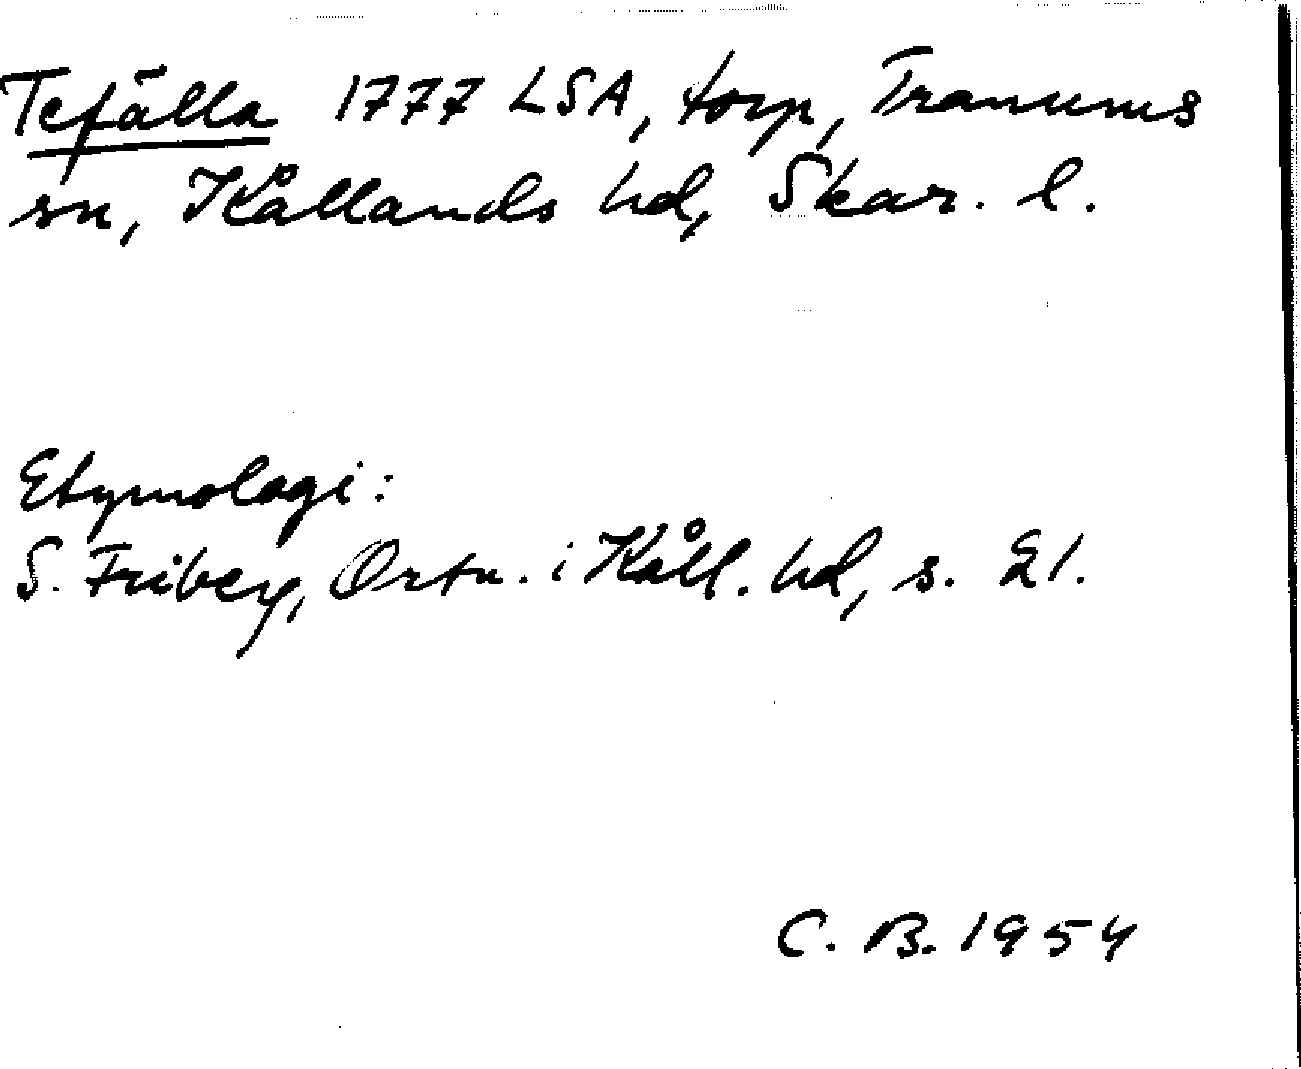 Tefälla 1777 LSA, torp, Tranums
sn, Kållands hd, Skar. l.
Etymologi:
S. Friberg, Ortn. i Kåll. hd, s. 21.
C. B. 1954